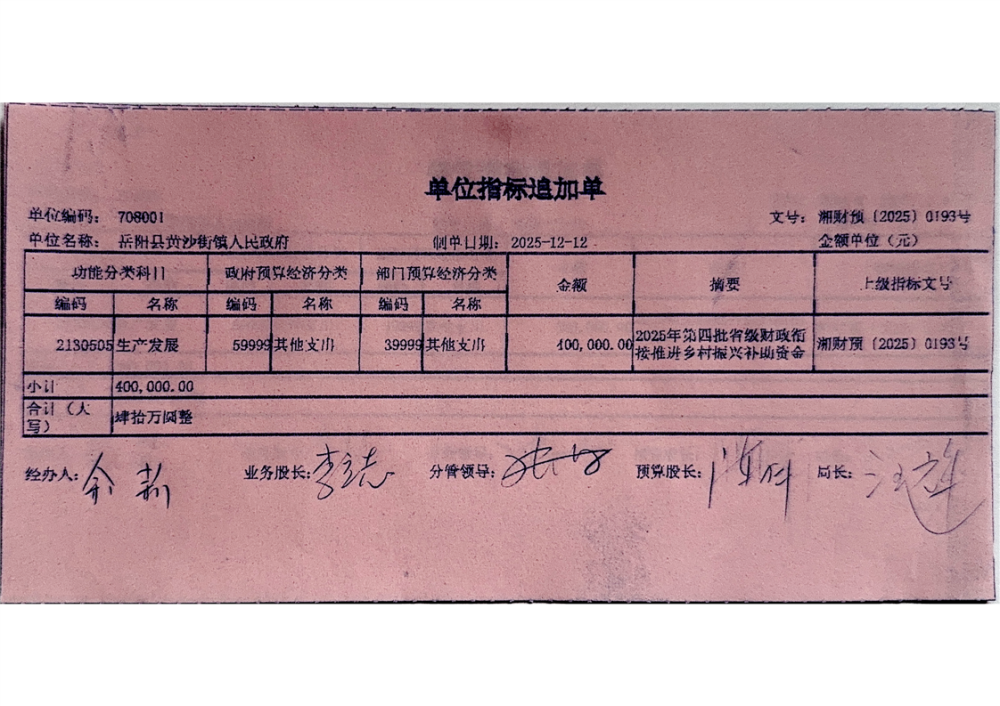 单位指标追加单
单位编码： 708001 文号： 湘财预〔2025〕0193号
单位名称： 岳阳县黄沙街镇人民政府 制单日期： 2025-12-12 金额单位（元）
功能分类科目 政府预算经济分类 部门预算经济分类 金额 摘要 上级指标文号
编码 名称 编码 名称 编码 名称
2130505 生产发展 59999 其他支出 39999 其他支出 400,000.00 2025年第四批省级财政衔 湘财预〔2025〕0193号
接推进乡村振兴补助资金
小计 400,000.00
合计（大 肆拾万圆整
写）
经办人： 业务股长： 分管领导： 预算股长： 局长：